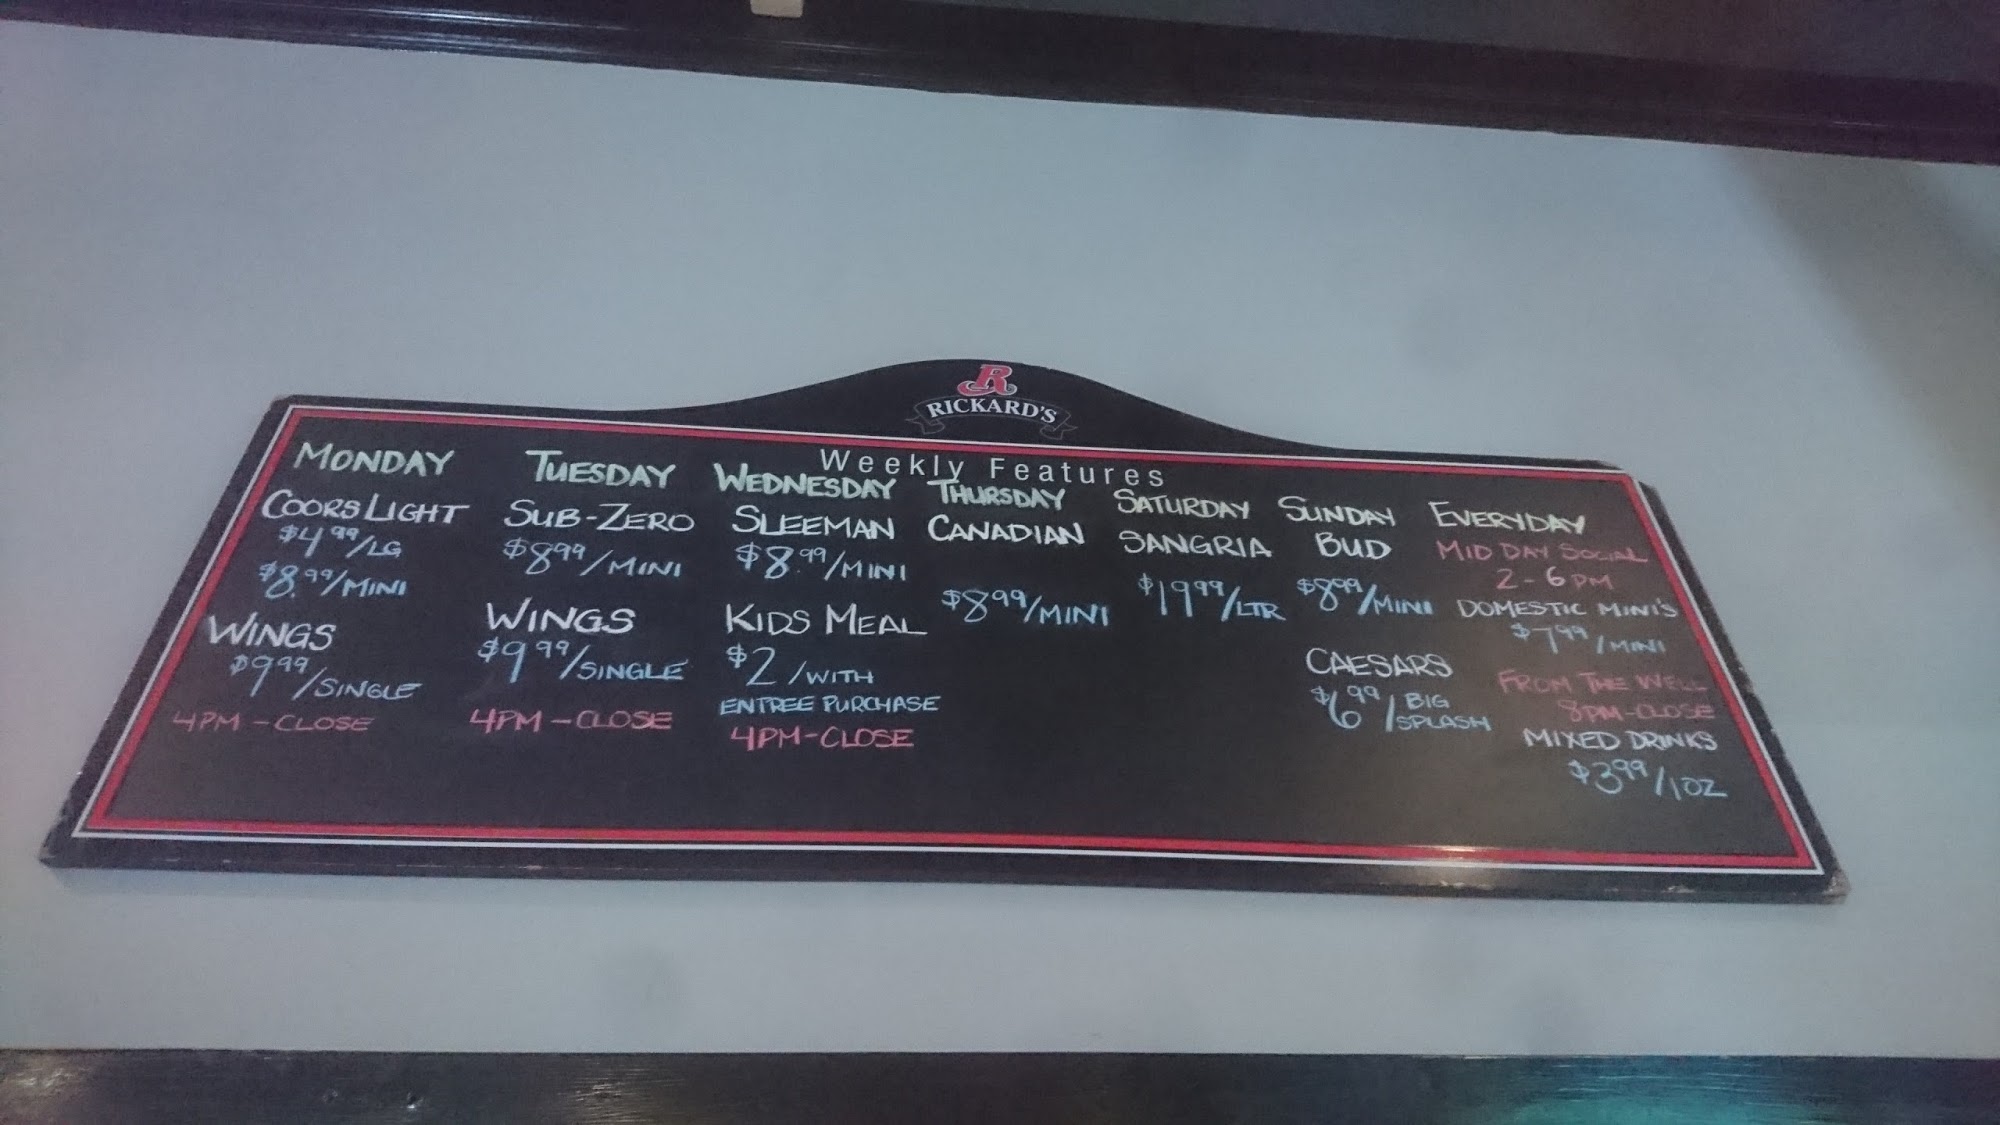 R
RICKARD'S
Weekly Features
MONDAY
COORS LIGHT
$4.99/LG
$8.99/MINI
WINGS
$9.99/SINGLE
4PM-CLOSE
TUESDAY
SUB-ZERO
$8.99/MINI
WINGS
$9.99/SINGLE
4PM-CLOSE
WEDNESDAY
SLEEMAN
$8.99/MINI
KIDS MEAL
$2/WITH
ENTREE PURCHASE
4PM-CLOSE
THURSDAY
CANADIAN
$8.99/MINI
SATURDAY
SANGRIA
$19.99/LTR
SUNDAY
BUD
$8.99/MINI
CAESARS
$6.99/BIG
SPLASH
EVERYDAY
MID DAY SOCIAL
2-6PM
DOMESTIC MINI'S
$7.99/MINI
FROM THE WELL
8PM-CLOSE
MIXED DRINKS
$3.99/1OZ